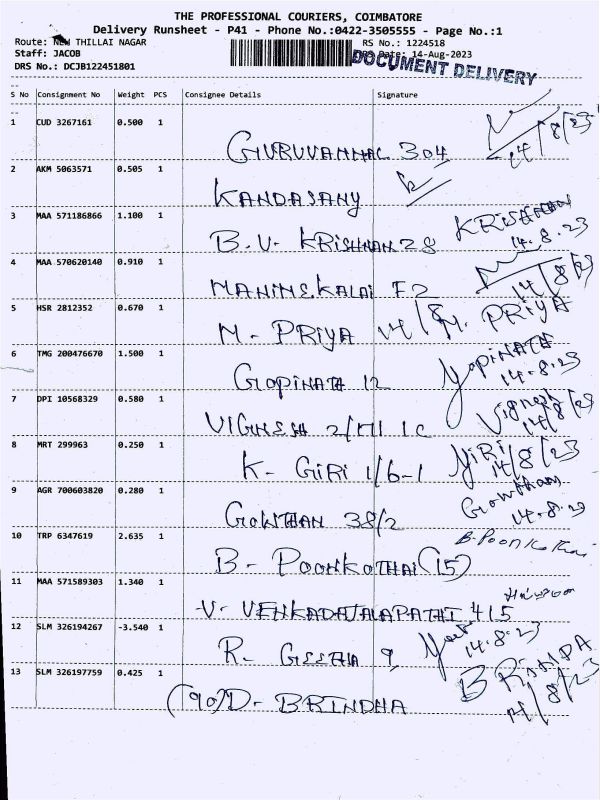 THE PROFESSIONAL COURIERS, COIMBATORE
Delivery Runsheet - P41 - Phone No.:0422-3505555 - Page No.:1
Route: NEW THILLAI NAGAR RS No.: 1224518
Staff: JACOB DRS Date: 14-Aug-2023
DRS No.: DCJB122451801 DOCUMENT DELIVERY
S No Consignment No Weight PCS Consignee Details Signature
1 CUD 3267161 0.500 1 14/8/23
GURUVAMMAL 304
2 AKM 5063571 0.505 1
KANDASAMY
3 MAA 571186866 1.100 1 KRISHNAN
B.V. KRISHNAN 28 14.8.23
4 MAA 570620140 0.910 1
MANIMEKALAI F2 14/8/23
5 HSR 2812352 0.670 1
M. PRIYA 14/8 M. PRIYA
6 TMG 200476670 1.500 1 Gopinath
GOPINATH 12 14.8.23
7 DPI 10568329 0.580 1 Vignesh
VIGNESH 1C 14/8/23
8 MRT 299963 0.250 1 GIRI
K. GIRI 1/6-1 14/8/23
9 AGR 700603820 0.280 1 Gowtham
GOWTHAM 38/2 14.8.23
10 TRP 6347619 2.635 1 B. Poonkothai
B. POONKOTHAI (15)
11 MAA 571589303 1.340 1
V. VENKADAJALAPATHI 415
12 SLM 326194267 -3.540 1
R. GEETHA 9 14.8.23
13 SLM 326197759 0.425 1 BRINDA
(90) D. BRINDHA 14/8/23